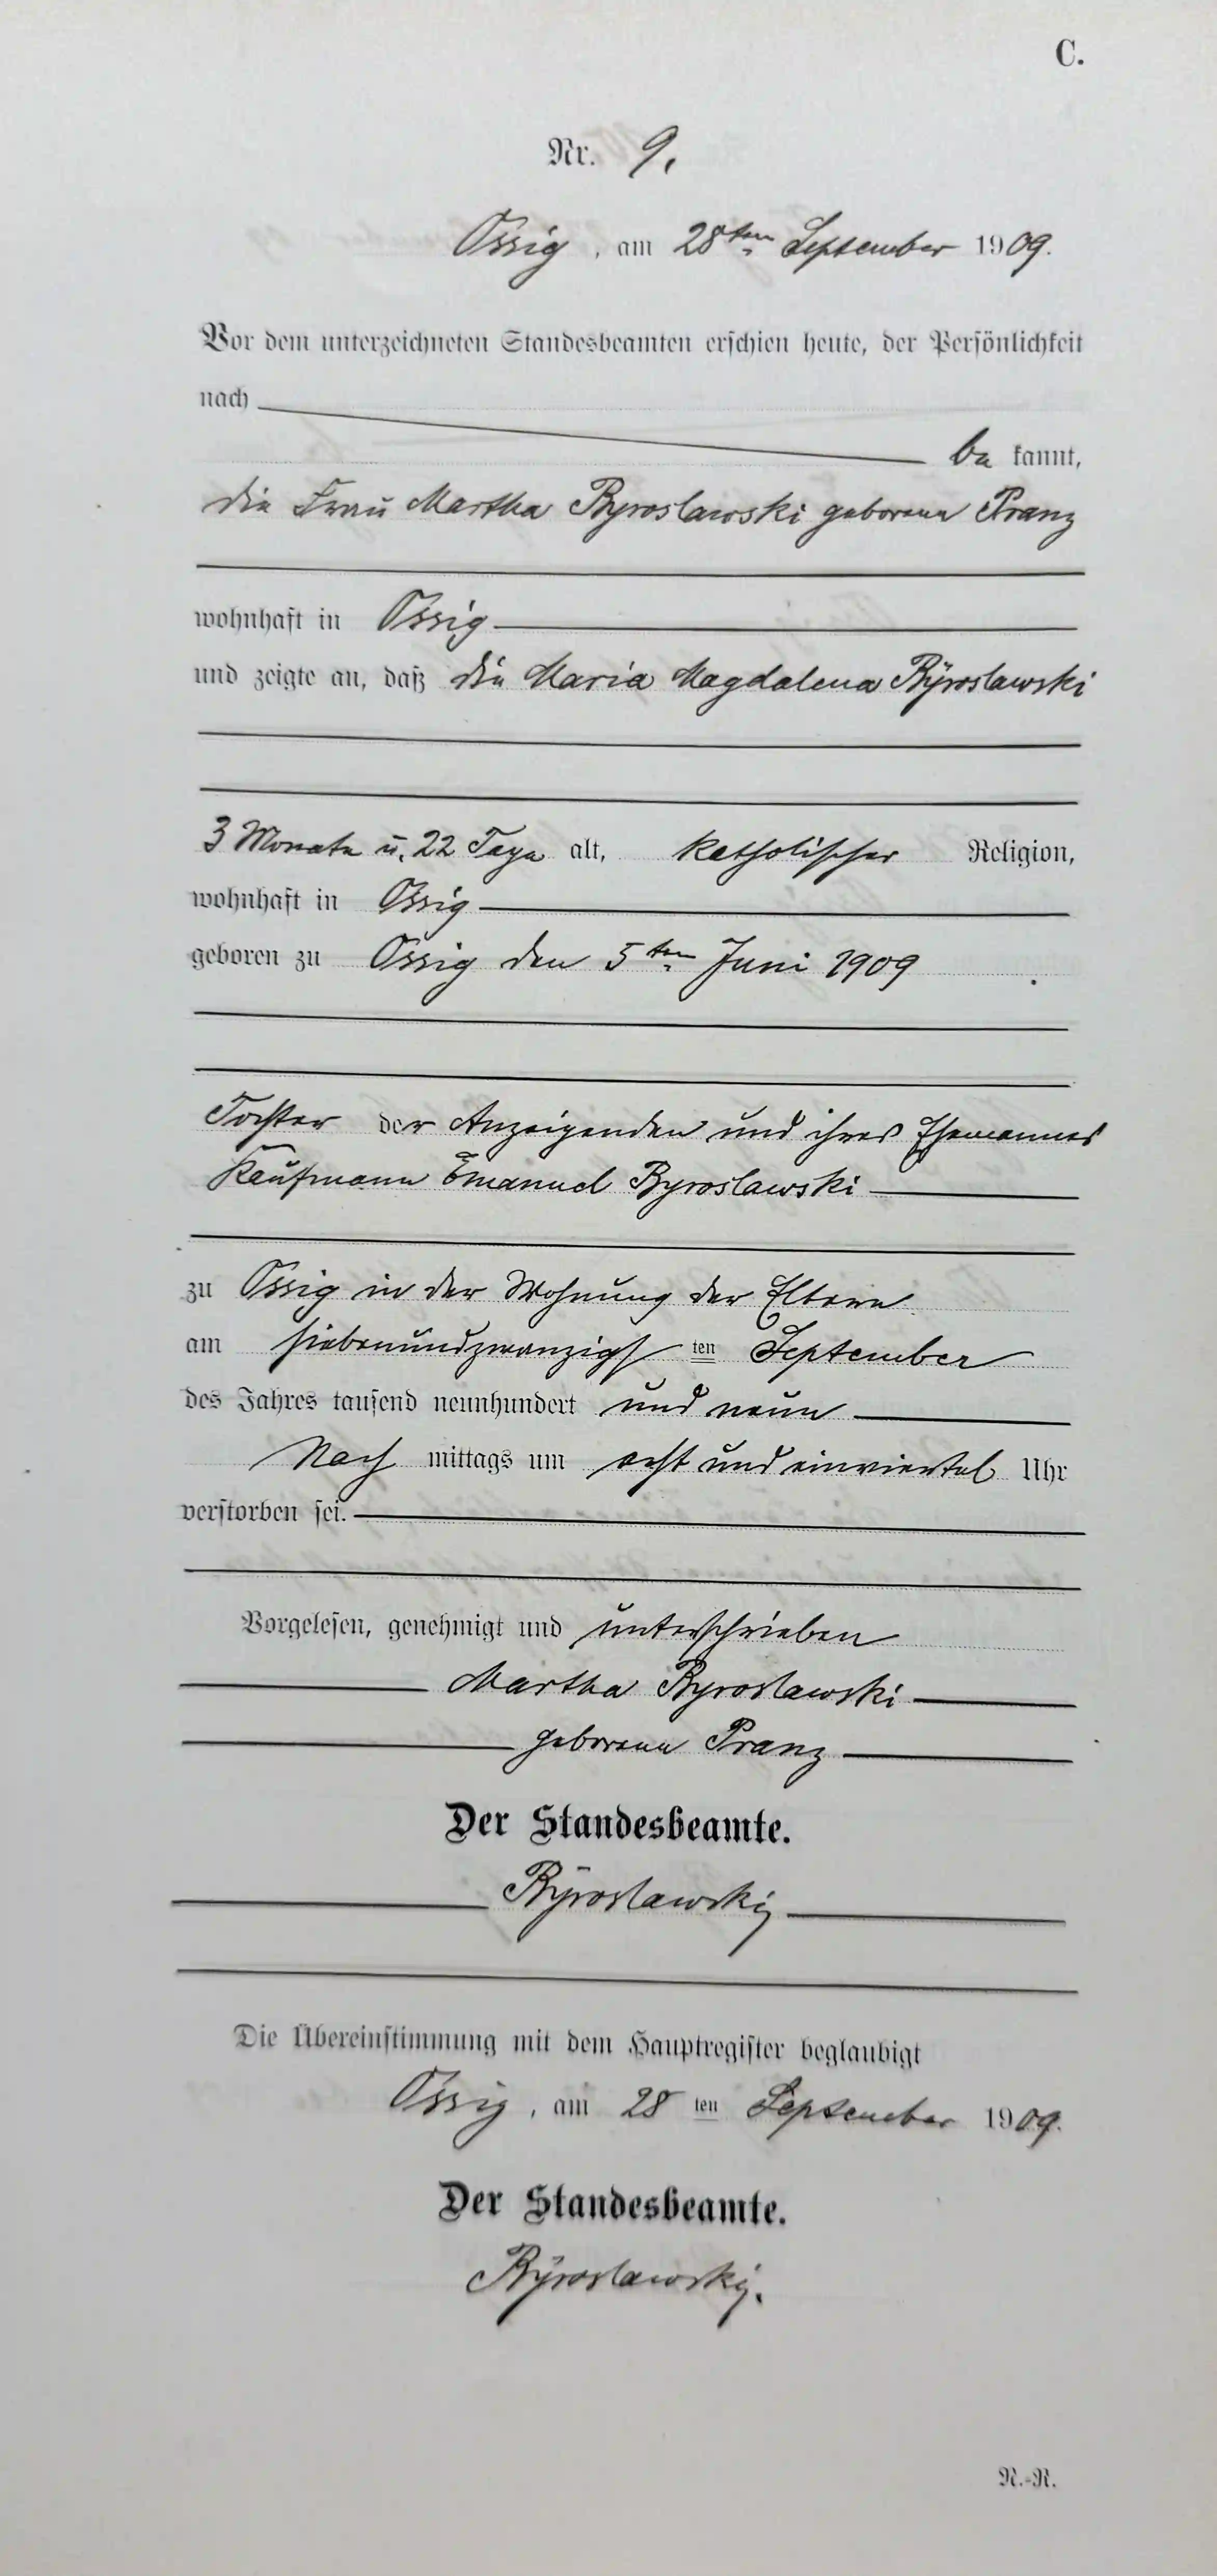 C.
Nr. 9.
Ossig, am 28ten September 1909.
Vor dem unterzeichneten Standesbeamten erschien heute, der Persönlichkeit
nach
be kannt,
die Frau Martha Byroslawski geborene Pranz
wohnhaft in Ossig
und zeigte an, daß die Maria Magdalena Byroslawski
3 Monate u. 22 Tage alt, katholischer Religion,
wohnhaft in Ossig
geboren zu Ossig den 5ten Juni 1909
Tochter der Anzeigenden und ihres Ehemannes
Kaufmann Emanuel Byroslawski
zu Ossig in der Wohnung der Eltern
am siebenundzwanzigsten September
des Jahres tausend neunhundert und neun
Nach mittags um acht und einviertel Uhr
verstorben sei.
Vorgelesen, genehmigt und unterschrieben
Martha Byroslawski
geborene Pranz
Der Standesbeamte.
Byroslawski
Die Übereinstimmung mit dem Hauptregister beglaubigt
Ossig, am 28 ten September 1909.
Der Standesbeamte.
Byroslawski.
N.-N.